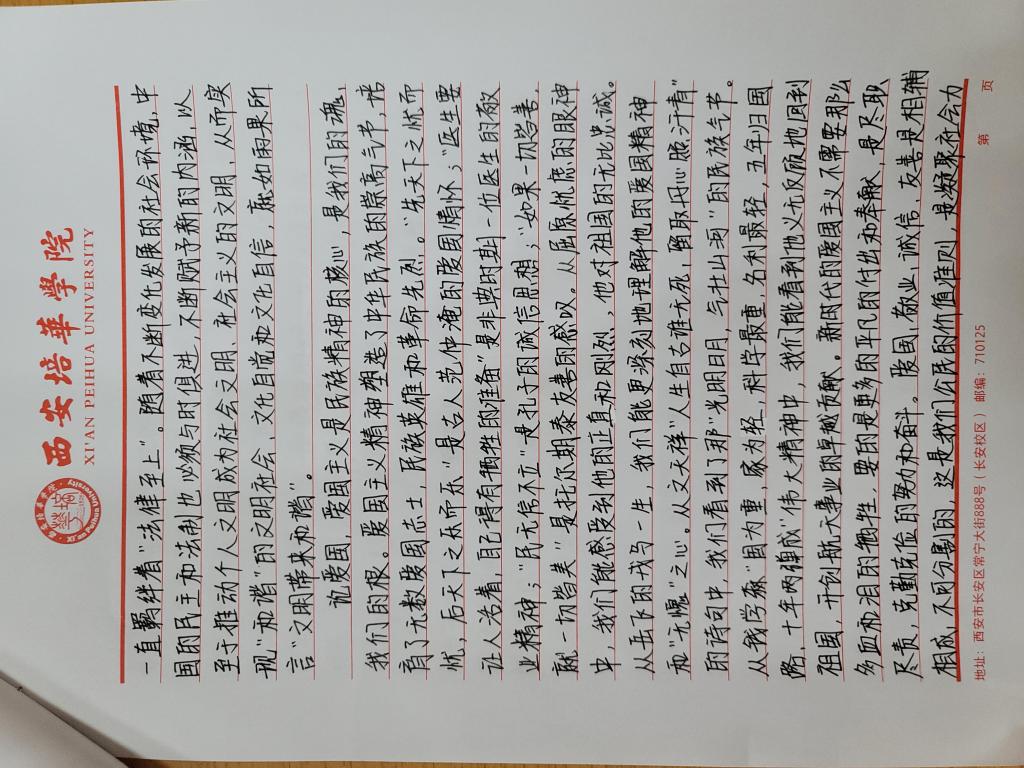 西安培華學院
XI'AN PEIHUA UNIVERSITY
一直羁绊着“法律至上”。随着不断变化发展的社会环境，中
国的民主和法制也必须与时俱进，不断赋予新的内涵，以
至于推动个人文明成为社会文明、社会主义的文明，从而实
现“和谐”的文明社会、文化自觉和文化自信，庶如雨果所
言“文明带来和谐”。
论爱国，爱国主义是民族精神的核心，是我们的魂，
我们的根。爱国主义精神塑造了中华民族的崇高气节，培
育了无数爱国志士，民族英雄和革命先烈。“先天下之忧而
忧，后天下之乐而乐”是古人范仲淹的爱国情怀；“医生要
让人活着，自己得有牺牲的准备”是非典时期一位医生的敬
业精神；“民无信不立”是孔子的诚信思想；“如果一切皆善，
就一切皆美”是托尔斯泰友善的感叹。从屈原忧虑的眼神
中，我们能感受到他的正直和刚烈，他对祖国的无比忠诚。
从岳飞的戎马一生，我们能更深刻地理解他的爱国精神
和“无愧”之心。从文天祥“人生自古谁无死，留取丹心照汗青”
的诗句中，我们看到了那“光明日月，气壮山河”的民族气节。
从钱学森“国为重，家为轻，科学最重，名利最轻，五年归国
路，十年两弹成”伟大精神中，我们能看到他义无反顾地回到
祖国，开创航天事业的卓越贡献。新时代的爱国主义不需要那么
多血和泪的牺牲，要的是更多的平凡的付出和奉献，是尽职
尽责，克勤克俭的努力和奋斗。爱国、敬业、诚信、友善是相辅
相成、不可分割的，这是我们公民的价值准则，是凝聚社会力
地址：西安市长安区常宁大街888号（长安校区） 邮编：710125
第 页